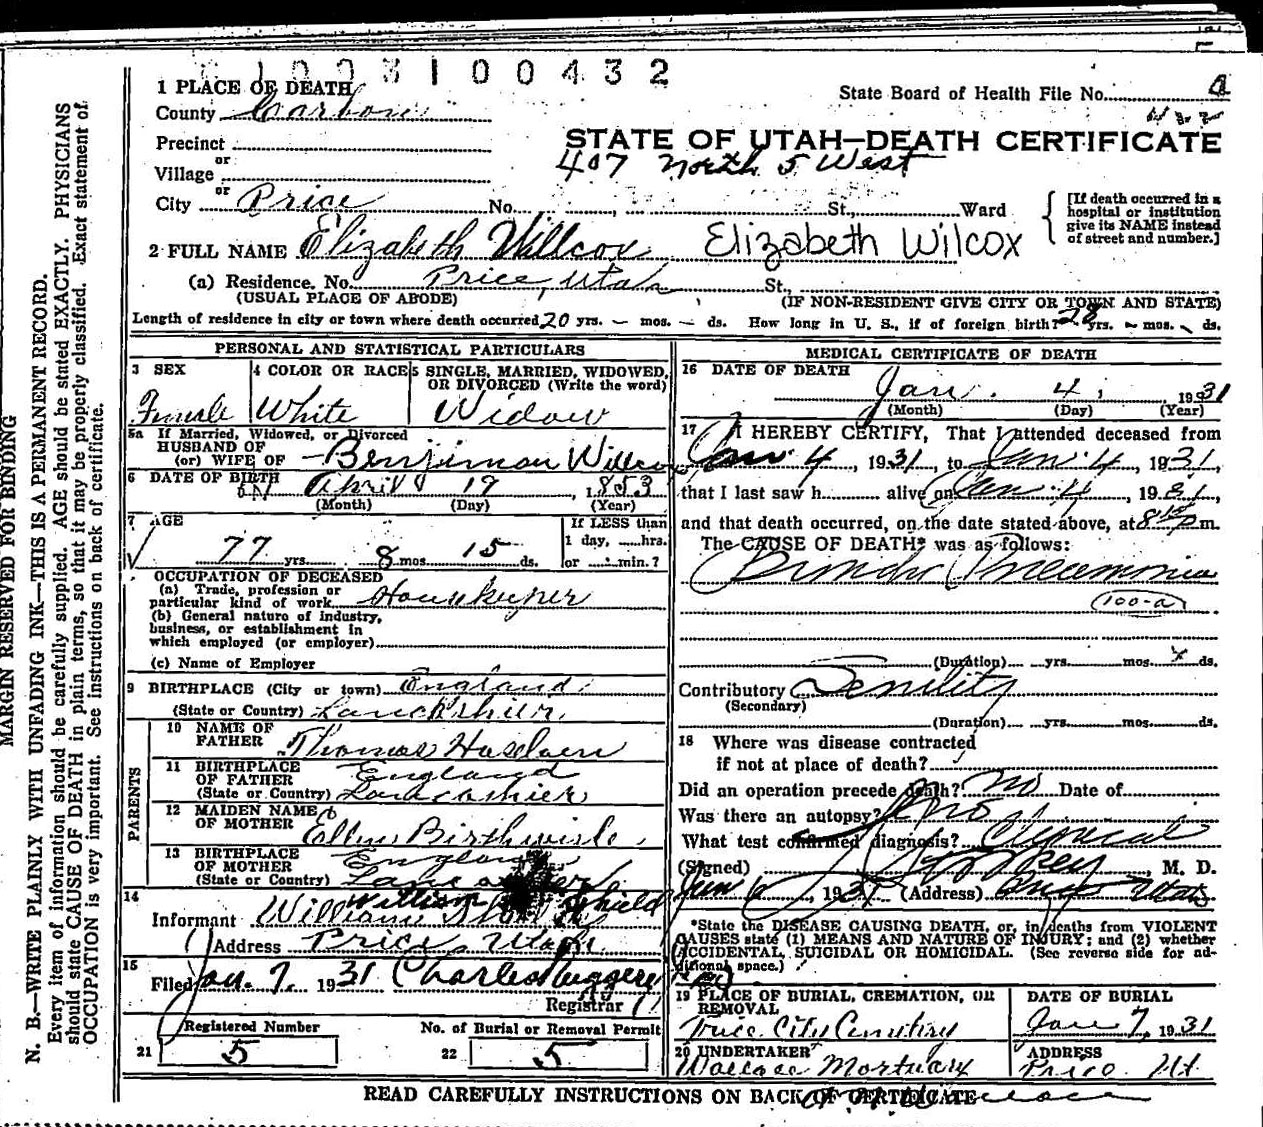 1003100432
1 PLACE OF DEATH
County Carbon
State Board of Health File No. 
432
Precinct
STATE OF UTAH—DEATH CERTIFICATE
or
407 North 5 West
Village
or
City Price No. St., Ward
[If death occurred in a hospital or institution give its NAME instead of street and number.]
2 FULL NAME Elizabeth Willcox Elizabeth Wilcox
(a) Residence. No. Price, Utah St.,
(USUAL PLACE OF ABODE) (IF NON-RESIDENT GIVE CITY OR TOWN AND STATE)
Length of residence in city or town where death occurred 20 yrs. – mos. – ds. How long in U. S., if of foreign birth? 28 yrs. – mos. ds.
PERSONAL AND STATISTICAL PARTICULARS
3 SEX 4 COLOR OR RACE 5 SINGLE, MARRIED, WIDOWED, OR DIVORCED (Write the word)
Female White Widow
5a If Married, Widowed, or Divorced
HUSBAND OF
(or) WIFE OF Benjimon Willcox
6 DATE OF BIRTH April 19, 1853
(Month) (Day) (Year)
7 AGE
77 yrs. 8 mos. 15 ds.
If LESS than 1 day, hrs. or min.?
8 OCCUPATION OF DECEASED
(a) Trade, profession or
particular kind of work Housekeeper
(b) General nature of industry,
business, or establishment in
which employed (or employer)
(c) Name of Employer
9 BIRTHPLACE (City or town) England
(State or Country) Lanckshier
PARENTS
10 NAME OF
FATHER Thomas Haslam
11 BIRTHPLACE England
OF FATHER
(State or Country) Lancashier
12 MAIDEN NAME
OF MOTHER Ellen Birthwisle
13 BIRTHPLACE England
OF MOTHER
(State or Country)
14
William Shield
Informant William
Address Price, Utah
15
Filed Jan. 7, 1931 Charles Huggery
Registrar
Registered Number No. of Burial or Removal Permit
21 5 22 5
MEDICAL CERTIFICATE OF DEATH
16 DATE OF DEATH
Jan. 4, 1931
(Month) (Day) (Year)
17 I HEREBY CERTIFY, That I attended deceased from
Jan. 4, 1931, to Jan. 4, 1931,
that I last saw h alive on Jan. 4, 1931,
and that death occurred, on the date stated above, at 8 15 p.m.
The CAUSE OF DEATH* was as follows:
Broncho Pneumonia
100-a
(Duration) yrs. mos. ds.
Contributory Senility
(Secondary)
(Duration) yrs. mos. ds.
18 Where was disease contracted
if not at place of death?
Did an operation precede death? No Date of
Was there an autopsy? no
What test confirmed diagnosis? Clynical
(Signed) M. D.
Jan 6, 1931 (Address) Price Utah
*State the DISEASE CAUSING DEATH, or, in deaths from VIOLENT
CAUSES state (1) MEANS AND NATURE OF INJURY; and (2) whether
ACCIDENTAL, SUICIDAL OR HOMICIDAL. (See reverse side for ad-
ditional space.)
19 PLACE OF BURIAL, CREMATION, OR REMOVAL DATE OF BURIAL
Price City Cemetery Jan 7, 1931
20 UNDERTAKER ADDRESS
Wallace Mortuary Price Ut.
READ CAREFULLY INSTRUCTIONS ON BACK OF CERTIFICATE
Wallace
MARGIN RESERVED FOR BINDING
N. B.—WRITE PLAINLY WITH UNFADING INK—THIS IS A PERMANENT RECORD.
Every item of information should be carefully supplied. AGE should be stated EXACTLY. PHYSICIANS
should state CAUSE OF DEATH in plain terms, so that it may be properly classified. Exact statement of
OCCUPATION is very important. See instructions on back of certificate.